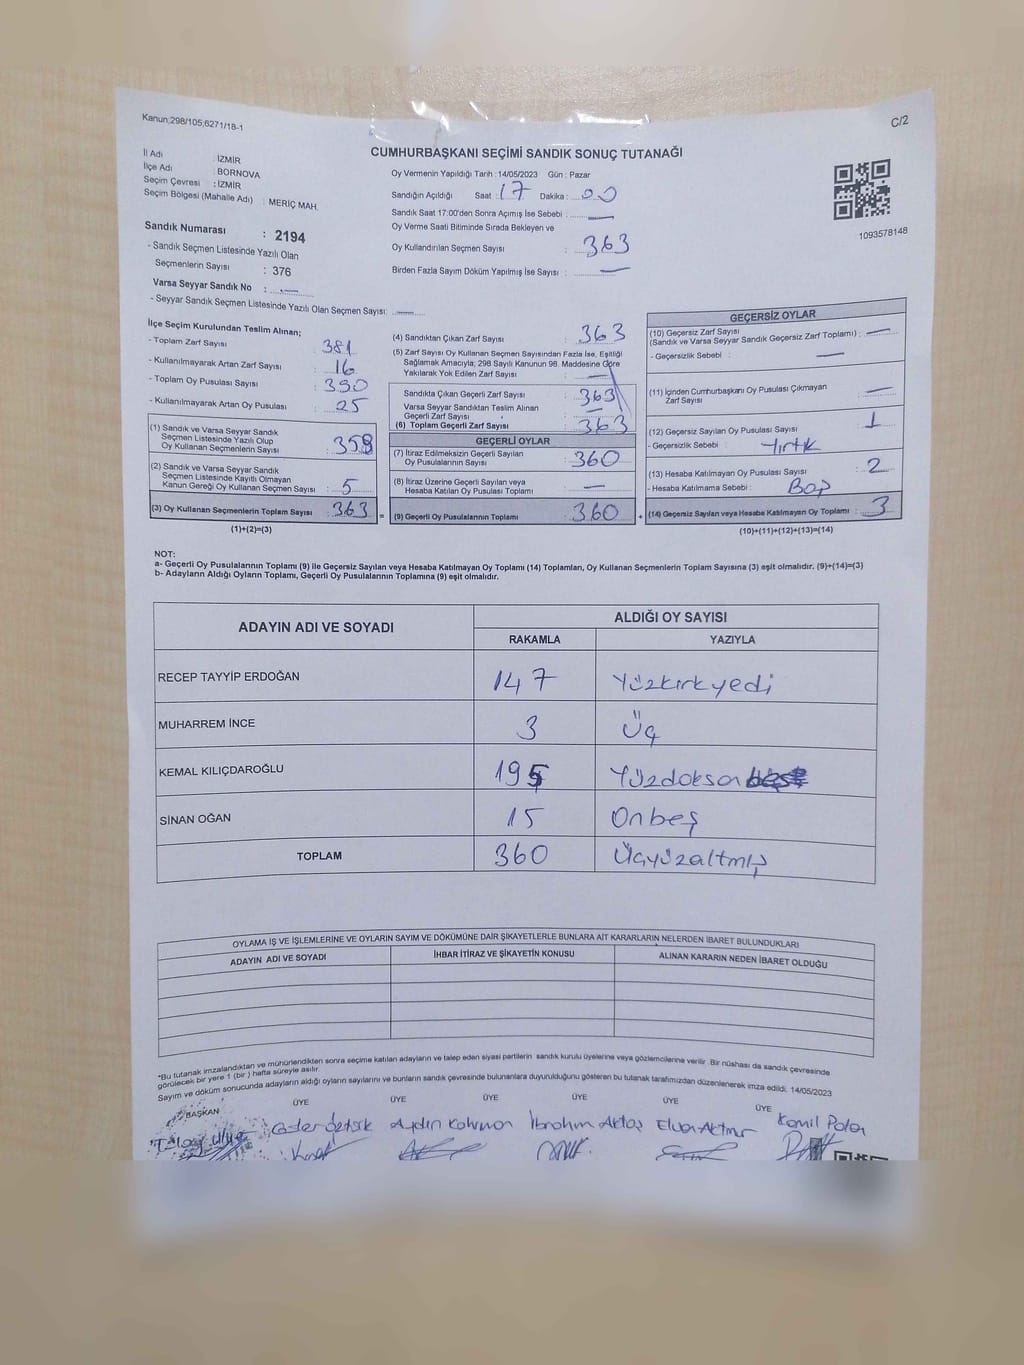 Kanun;298/105,6271/18-1
C/2
CUMHURBAŞKANI SEÇİMİ SANDIK SONUÇ TUTANAĞI
İl Adı : İZMİR
İlçe Adı : BORNOVA
Seçim Çevresi : İZMİR
Seçim Bölgesi (Mahalle Adı) : MERİÇ MAH.
Sandık Numarası : 2194
- Sandık Seçmen Listesinde Yazılı Olan
Seçmenlerin Sayısı : 376
Varsa Seyyar Sandık No : —
- Seyyar Sandık Seçmen Listesinde Yazılı Olan Seçmen Sayısı: —
Oy Vermenin Yapıldığı Tarih :14/05/2023 Gün : Pazar
Sandığın Açıldığı Saat : 17 Dakika : 00
Sandık Saat 17:00'den Sonra Açımış İse Sebebi : —
Oy Verme Saati Bitiminde Sırada Bekleyen ve
Oy Kullandırılan Seçmen Sayısı : 363
Birden Fazla Sayım Döküm Yapılmış İse Sayısı : —
1093578148
İlçe Seçim Kurulundan Teslim Alınan;
- Toplam Zarf Sayısı : 381
- Kullanılmayarak Artan Zarf Sayısı : 16
- Toplam Oy Pusulası Sayısı : 390
- Kullanılmayarak Artan Oy Pusulası : 25
(1) Sandık ve Varsa Seyyar Sandık
Seçmen Listesinde Yazılı Olup
Oy Kullanan Seçmenlerin Sayısı : 358
(2) Sandık ve Varsa Seyyar Sandık
Seçmen Listesinde Kayıtlı Olmayan
Kanun Gereği Oy Kullanan Seçmen Sayısı : 5
(3) Oy Kullanan Seçmenlerin Toplam Sayısı : 363 =
(1)+(2)=(3)
(4) Sandıktan Çıkan Zarf Sayısı : 363
(5) Zarf Sayısı Oy Kullanan Seçmen Sayısından Fazla İse, Eşitliği
Sağlamak Amacıyla; 298 Sayılı Kanunun 98. Maddesine Göre
Yakılarak Yok Edilen Zarf Sayısı : —
Sandıkta Çıkan Geçerli Zarf Sayısı : 363
Varsa Seyyar Sandıktan Teslim Alınan
Geçerli Zarf Sayısı : —
(6) Toplam Geçerli Zarf Sayısı : 363
GEÇERLİ OYLAR
(7) İtiraz Edilmeksizin Geçerli Sayılan
Oy Pusulalarının Sayısı : 360
(8) İtiraz Üzerine Geçerli Sayılan veya
Hesaba Katılan Oy Pusulası Toplamı : —
(9) Geçerli Oy Pusulalarının Toplamı : 360 +
GEÇERSİZ OYLAR
(10) Geçersiz Zarf Sayısı
(Sandık ve Varsa Seyyar Sandık Geçersiz Zarf Toplamı) : —
- Geçersizlik Sebebi : —
(11) İçinden Cumhurbaşkanı Oy Pusulası Çıkmayan
Zarf Sayısı : —
(12) Geçersiz Sayılan Oy Pusulası Sayısı : 1
- Geçersizlik Sebebi : Yırtık
(13) Hesaba Katılmayan Oy Pusulası Sayısı : 2
- Hesaba Katılmama Sebebi : Boş
(14) Geçersiz Sayılan veya Hesaba Katılmayan Oy Toplamı : 3
(10)+(11)+(12)+(13)=(14)
NOT:
a- Geçerli Oy Pusulalarının Toplamı (9) ile Geçersiz Sayılan veya Hesaba Katılmayan Oy Toplamı (14) Toplamları, Oy Kullanan Seçmenlerin Toplam Sayısına (3) eşit olmalıdır. (9)+(14)=(3)
b- Adayların Aldığı Oyların Toplamı, Geçerli Oy Pusulalarının Toplamına (9) eşit olmalıdır.
ADAYIN ADI VE SOYADI ALDIĞI OY SAYISI
RAKAMLA YAZIYLA
RECEP TAYYİP ERDOĞAN 147 Yüzkırkyedi
MUHARREM İNCE 3 Üç
KEMAL KILIÇDAROĞLU 195 Yüzdoksan beş
SİNAN OĞAN 15 Onbeş
TOPLAM 360 Üçyüzaltmış
OYLAMA İŞ VE İŞLEMLERİNE VE OYLARIN SAYIM VE DÖKÜMÜNE DAİR ŞİKAYETLERLE BUNLARA AİT KARARLARIN NELERDEN İBARET BULUNDUKLARI
ADAYIN ADI VE SOYADI İHBAR İTİRAZ VE ŞİKAYETİN KONUSU ALINAN KARARIN NEDEN İBARET OLDUĞU
*Bu tutanak imzalandıktan ve mühürlendikten sonra seçime katılan adayların ve talep eden siyasi partilerin sandık kurulu üyelerine veya gözlemcilerine verilir .Bir nüshası da sandık çevresinde
görülecek bir yere 1 (bir ) hafta süreyle asılır.
Sayım ve döküm sonucunda adayların aldığı oyların sayılarını ve bunların sandık çevresinde bulunanlara duyurulduğunu gösteren bu tutanak tarafımızdan düzenlenerek imza edildi. 14/05/2023
BAŞKAN ÜYE ÜYE ÜYE ÜYE ÜYE ÜYE
Aydın İbrahim Aktaş Kamil